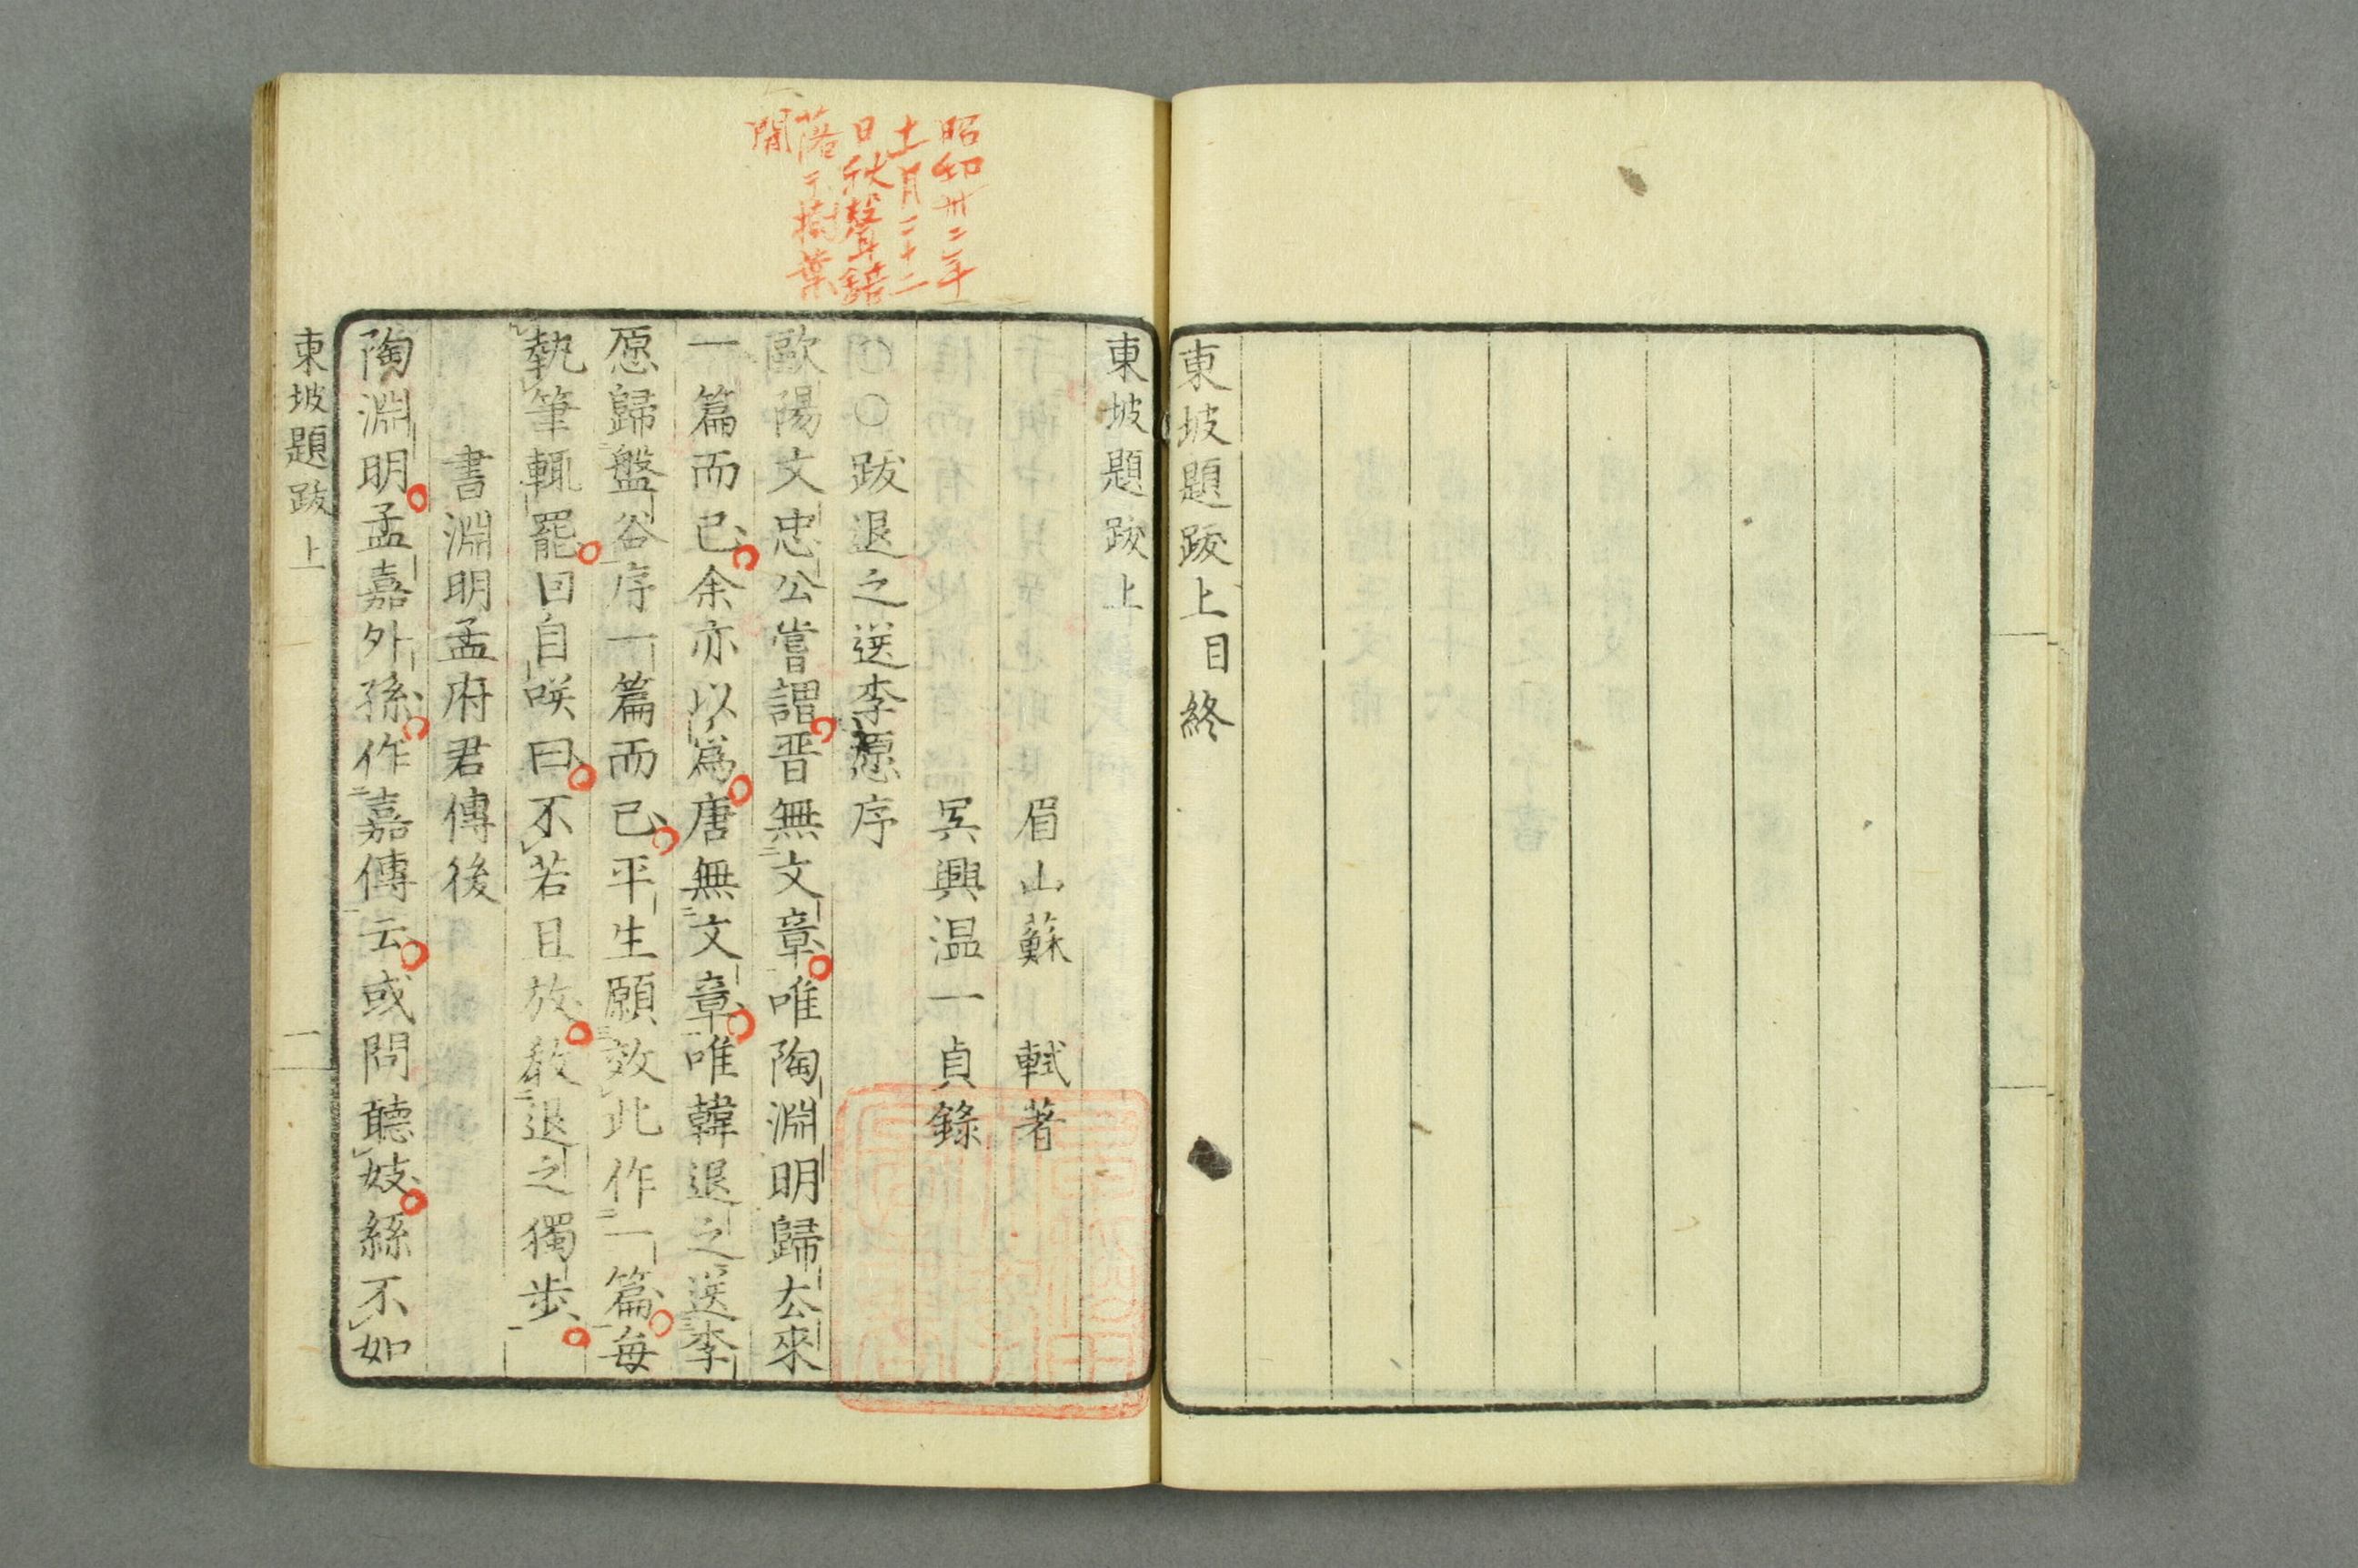 東坡題跋上目終
昭和卅二年
十一月二十二
日秋聲館
落木樹葉
東坡題跋上
眉山蘇軾著
吴興温一貞錄
〇〇跋退之送李愿序
歐陽文忠公嘗謂晋無文章唯陶淵明歸去來
一篇而已余亦以爲唐無文章唯韓退之送李
愿歸盤谷序一篇而已平生願效此作一篇每
執筆輒罷囙自咲曰不若且放敎退之獨步
書淵明孟府君傳後
陶淵明孟嘉外孫作嘉傳云或問聽妓絲不如
東坡題跋上
一